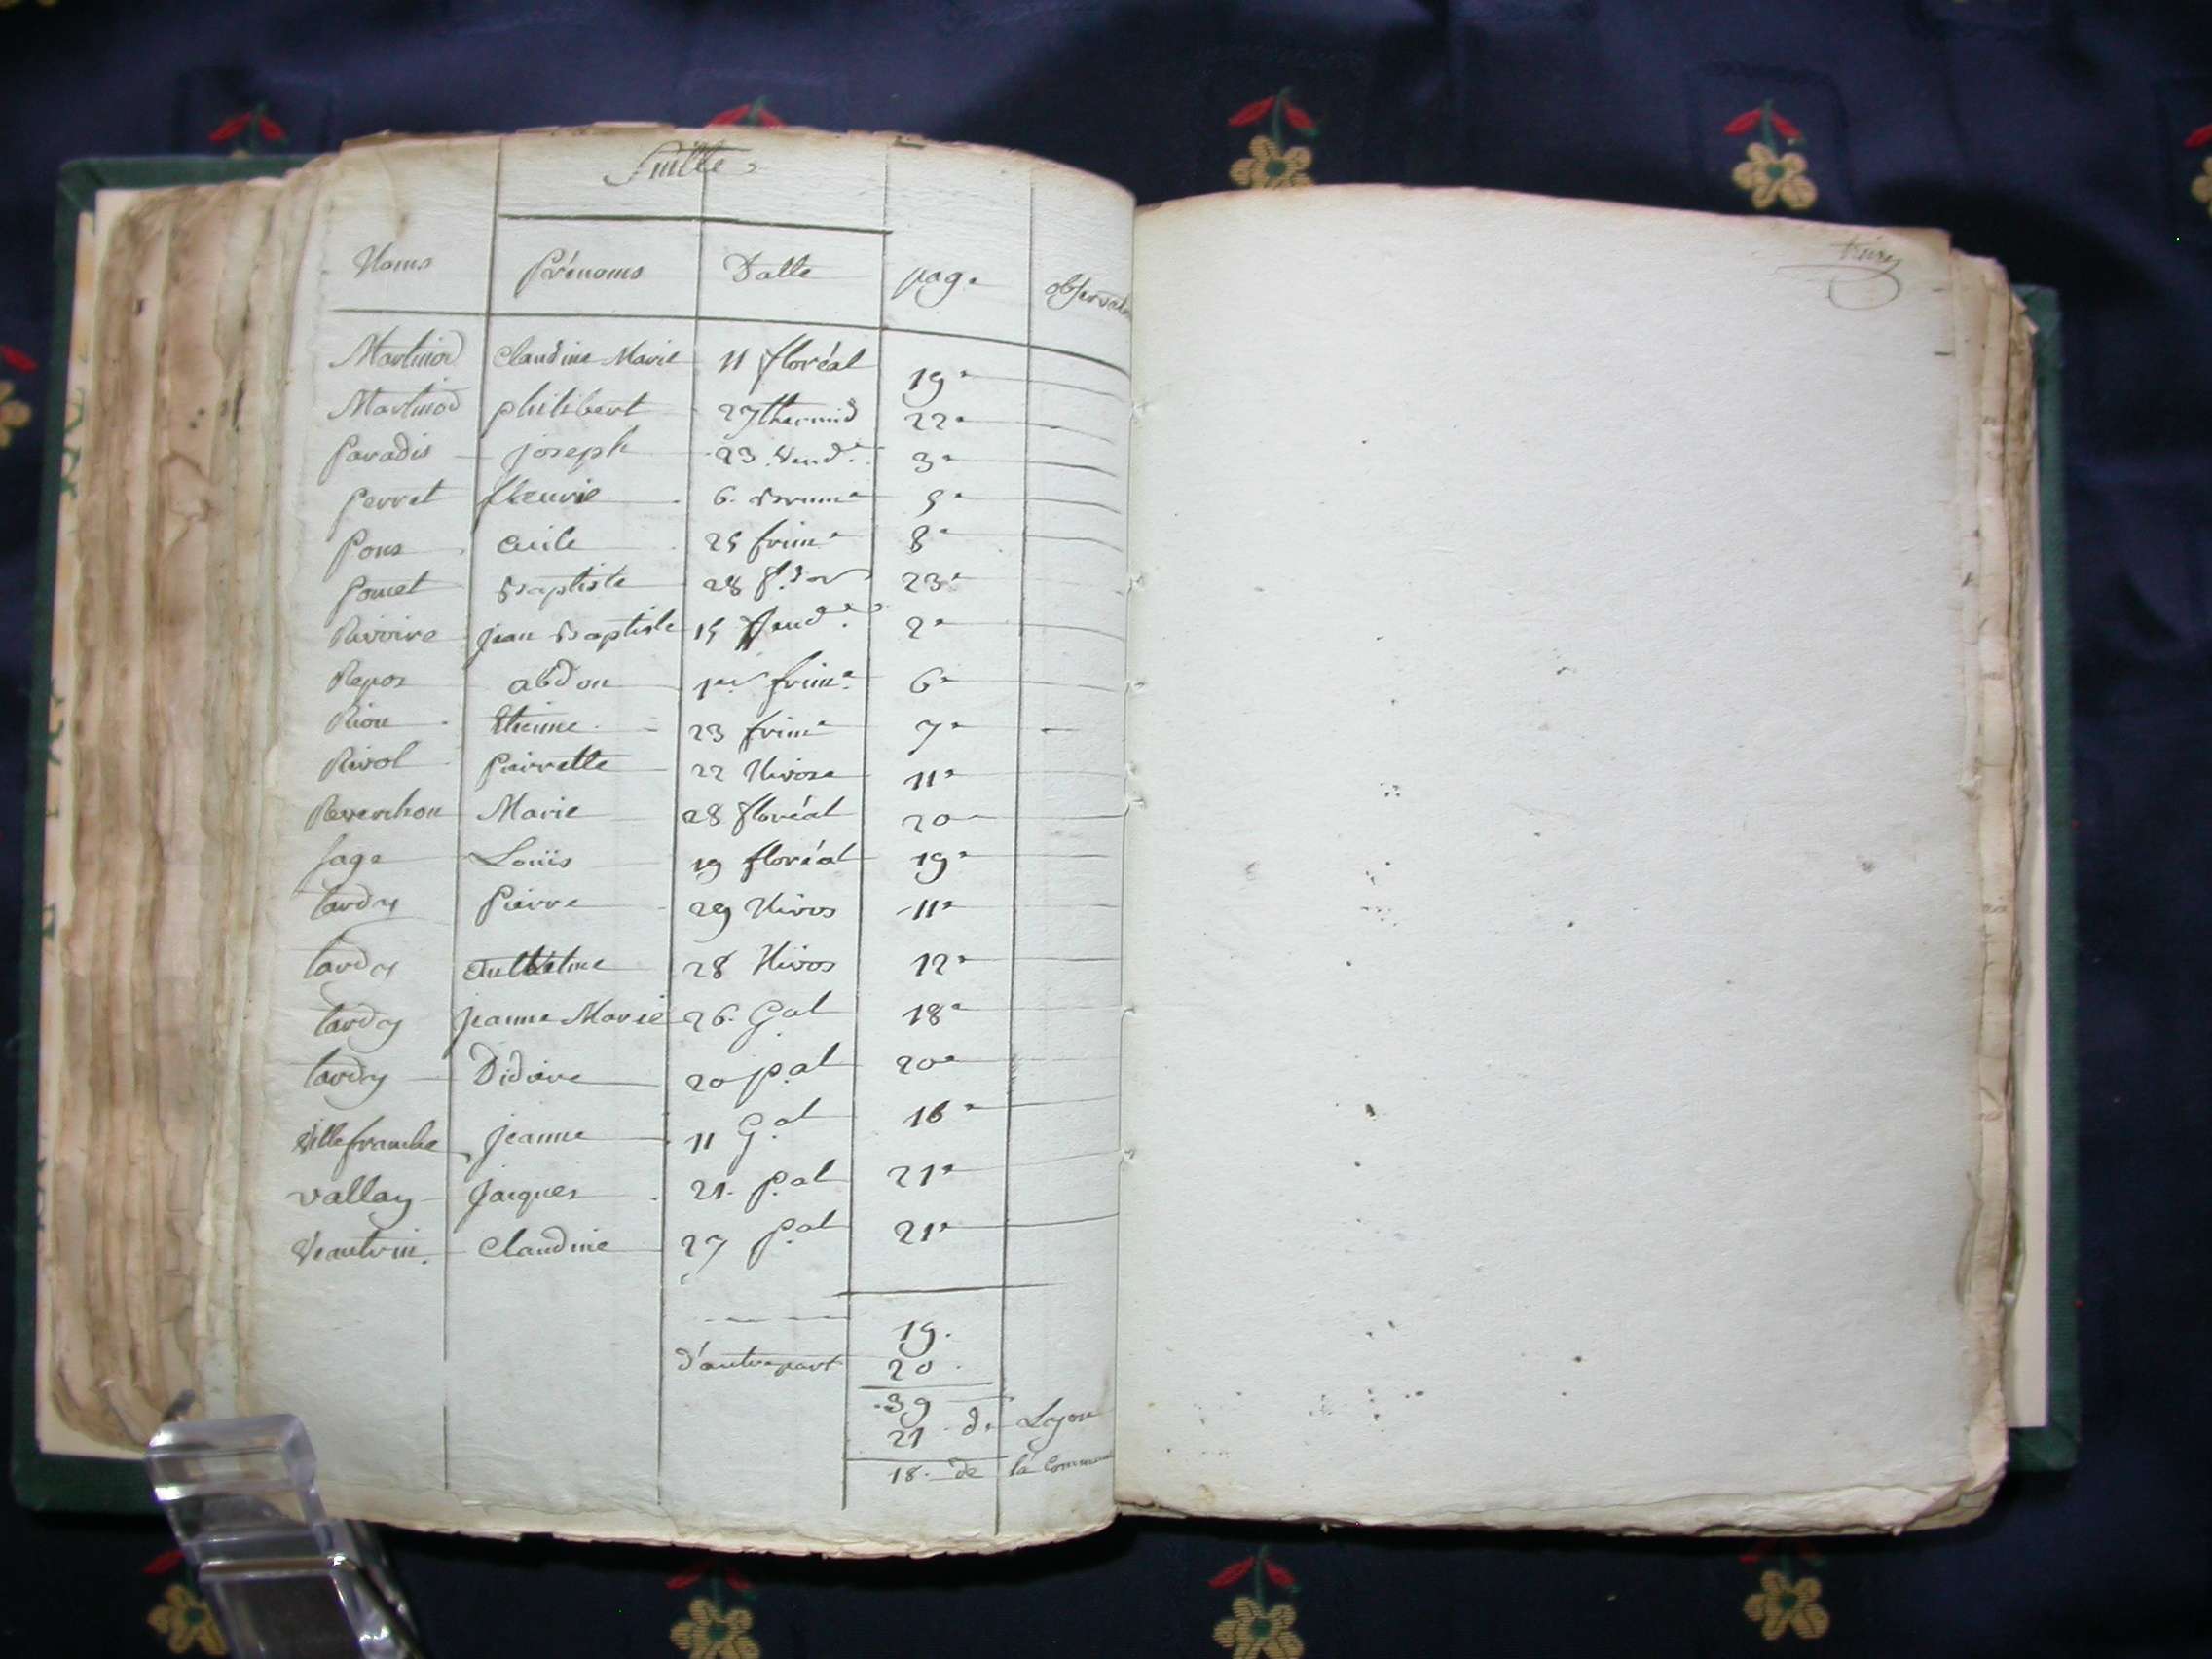 Suitte
Noms Prénoms Datte page observations
Martinod Claudine Marie 11 floréal 19e
Martinod philibert 27 thermid 22e
Paradis joseph 23 Vend.e 3e
perret fleurie 6. Brume 5e
Pons Cecile 25 frime 8e
poncet Baptiste 28 f.dor 23e
Rivoire jean Baptiste 15 Vend.e 2e
Repos abdon 1er frime 6e
Rion Etienne 23 frime 7e
Rivol Pierrette 22 Nivose 11e
Reverchon Marie 28 floréal 20e
Sage Louis 19 floréal 19e
tardy Pierre 29 Nivos 11e
tardy Anthelme 28 Nivos 12e
tardy jeanne Marie 26. G.al 18e
tardy Didière 20 p.al 20e
Villefranche jeanne 11 G.al 16e
vallay jacques 21. p.al 21e
Veautrin. Claudine 27 p.al 21e
19.
d'autre part 20.
39
21 de Lyon
18. de la Commune